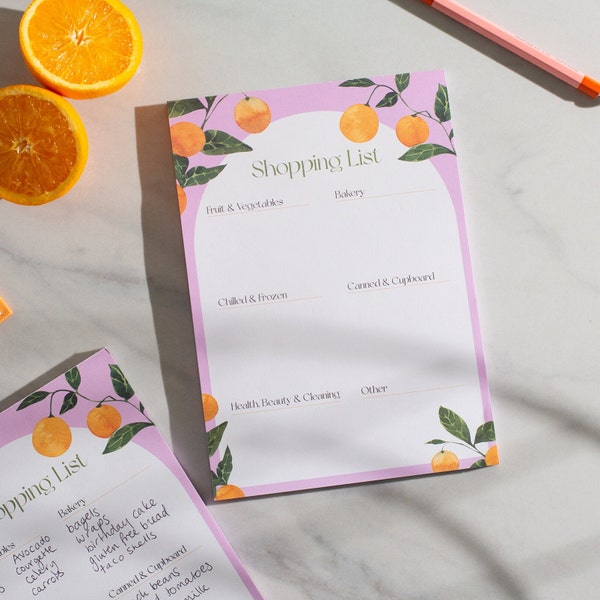 Shopping List
Fruit & Vegetables
Bakery
Chilled & Frozen
Canned & Cupboard
Health, Beauty & Cleaning
Other
List
Bakery
Avocado
courgette
celery
carrots
bagels
wraps
birthday cake
gluten free bread
taco shells
Canned & Cupboard
beans
tomatoes
milk